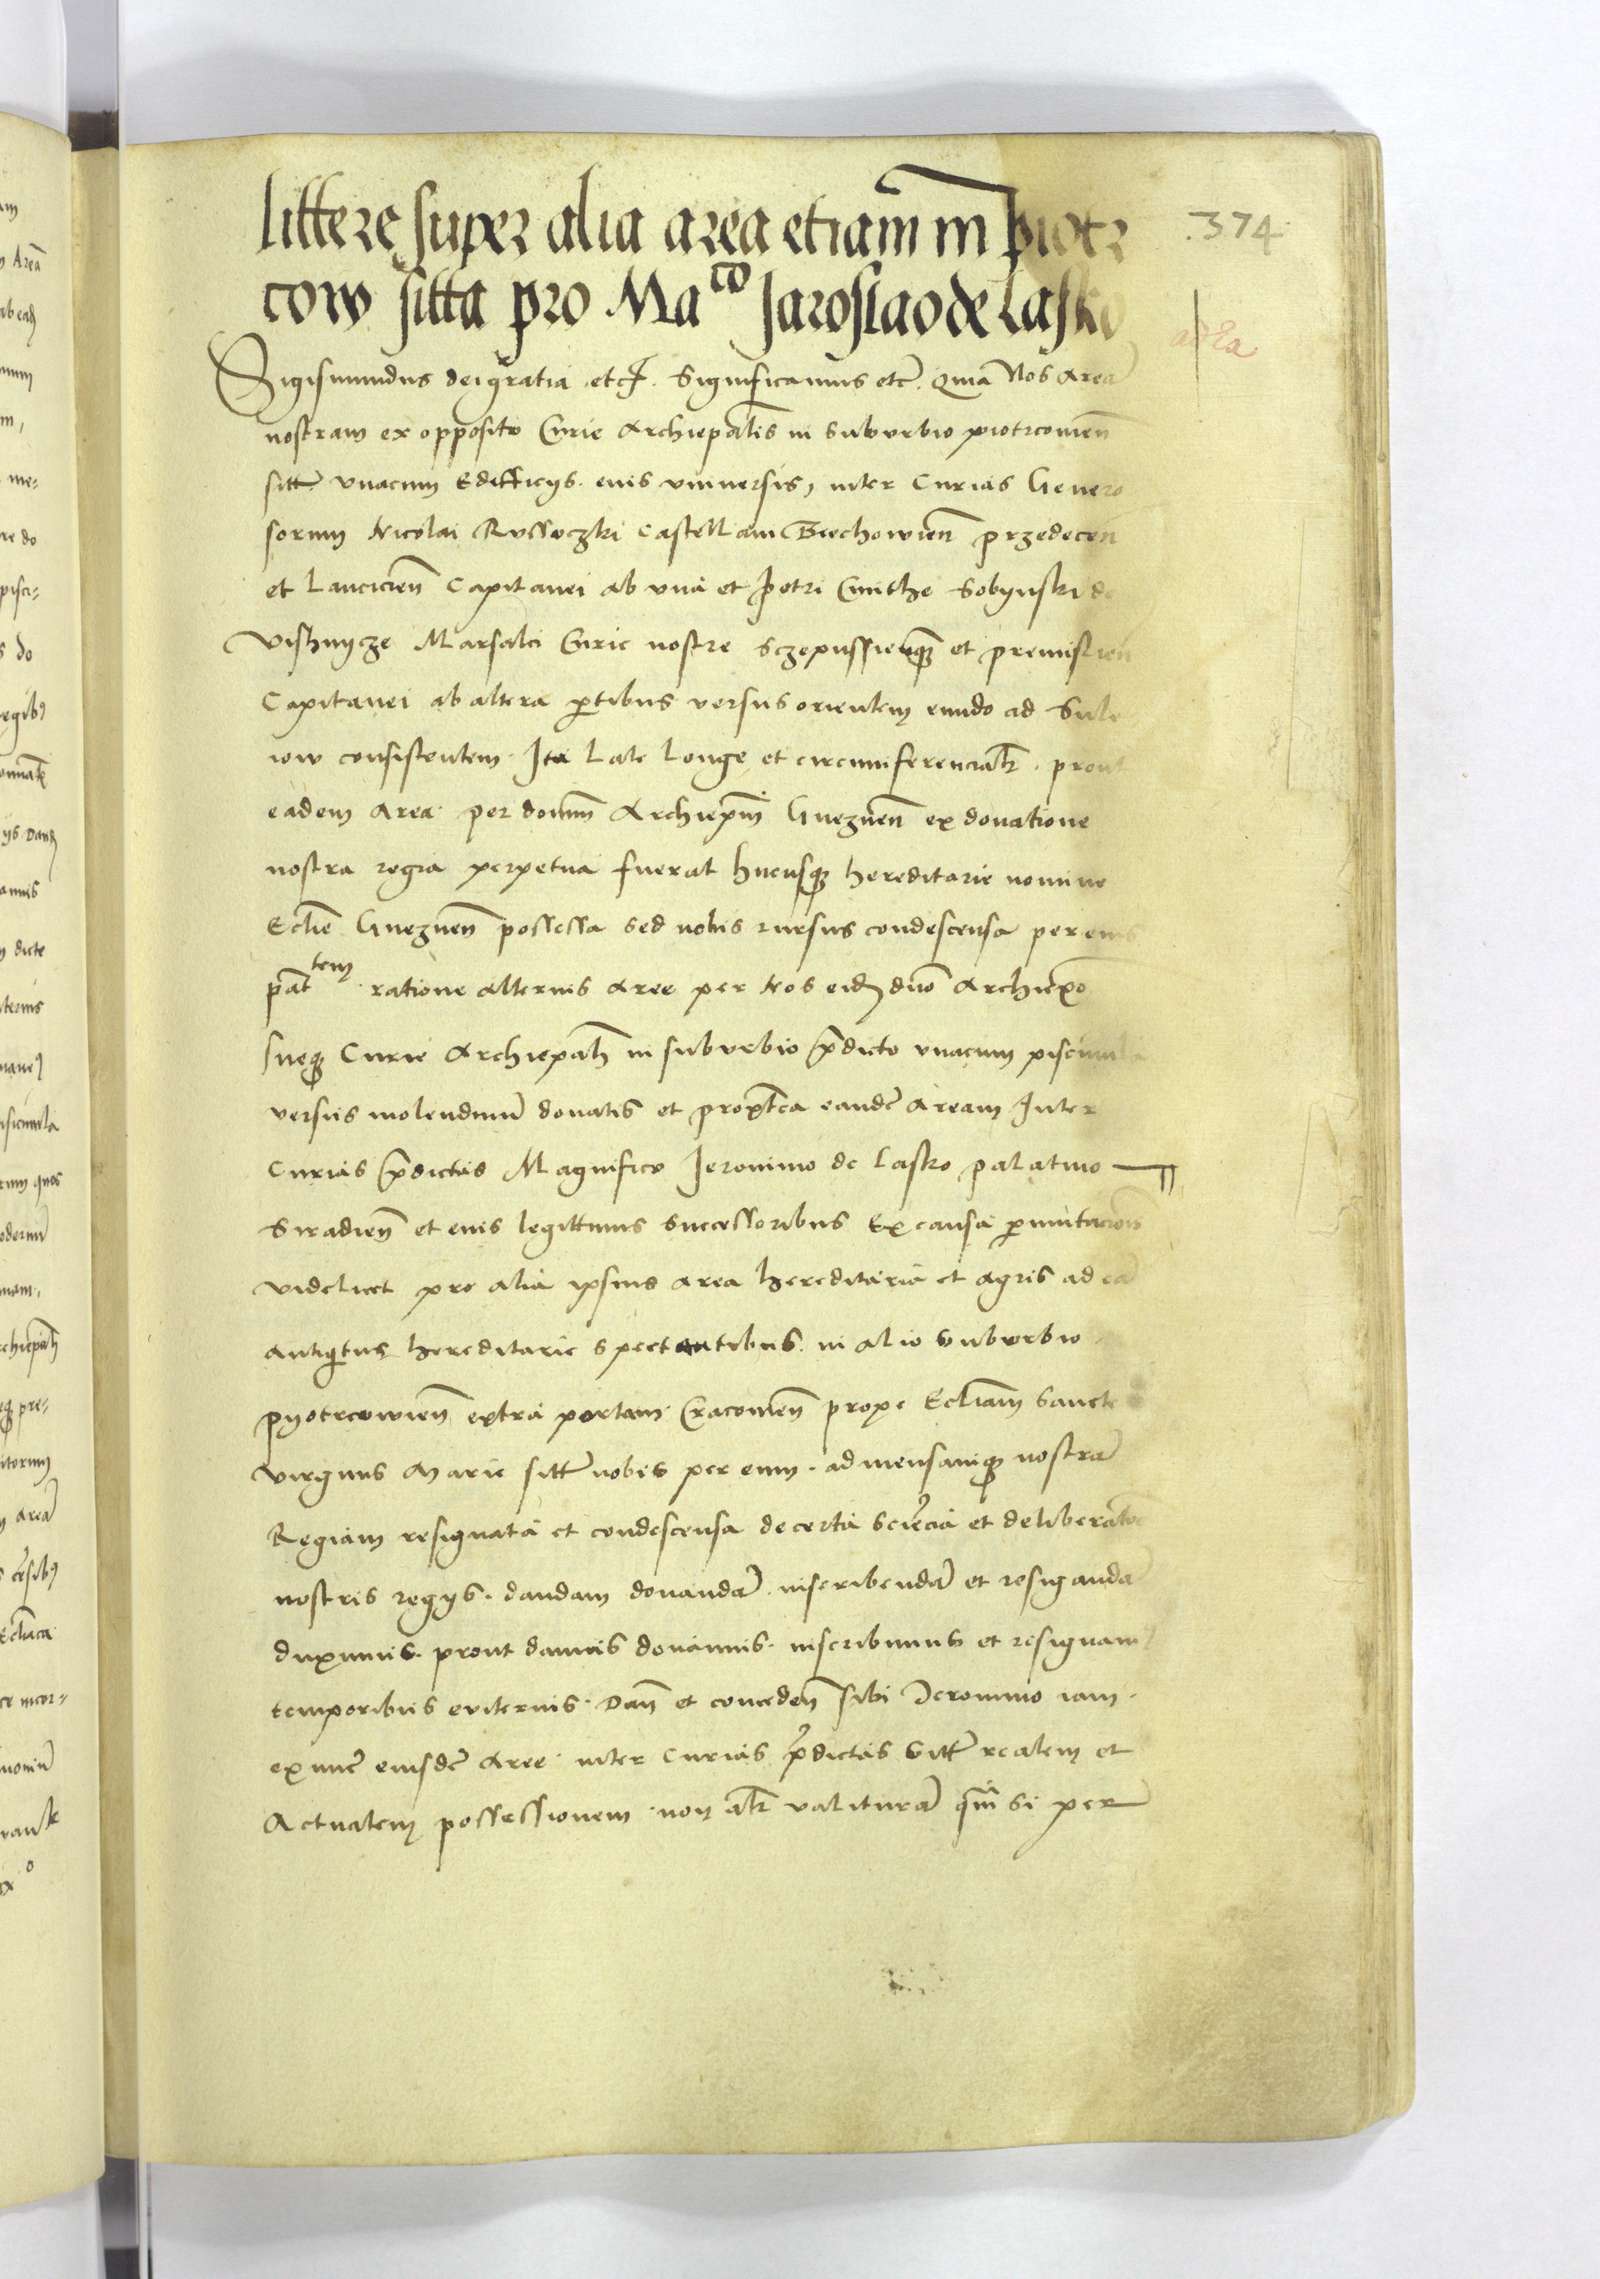 littere super alia area etiam in piotr
cow sitta pro Maco Jaroslao de Lasko
374
Sigismundus dei gratia etc. Significamus etc. Quia Nos Areã
nostram ex opposito Curie Archiepalis in suburbio piotrcouien̄
sitt̃ vnacum Edifficijs eius vniuersis, inter Curias Genero
sorum Nicolai Russoczki Castellani Byechowien̄ przedecen
et Lancicien̄ Capitanei ab vna et petri Cmithe Sobijnski de
Vishnycze Marsalci Curie nostre Sczepussienq̃ et premislien
Capitanei ab altera ptibus versus orientem eundo ad Sule
iow consistentem. Ita Late Longe et circumferencialr̃. prout
eadem Area per dominũ Archiepm̃ Gneznen̄ ex donatione
nostra regia perpetua fuerat hucusq̃ hereditarie nomine
Eccl̃ie Gneznen̄ possessa sed nobis rursus condescensa per eius
pat̃tem ratione alterius aree per Nos eidẽ dño Archiepo
sueq̃ Curie Archiepalĩ in suburbio p̃dicto vnacum piscinula
versus molendinũ donatis et propt̃ea eandẽ aream Inter
Curias p̃dictas Magnifico Jeronimo de Lasko palatino
Siradien̄ et eius legittimis successoribus Ex causa pmutacionis
videlicet pro alia ipsius area hereditaria et agris ad eã
antiqitus hereditarie spectantibus in alio suburbio
Pyotrcowien̄ extra portam Cracouien̄ prope Eccl̃iam sancte
virginis Marie sitt̃ nobis per eum ad mensamq̃ nostrã
Regiam resignata et condescensa de certa scie͂cia et deliberatõe
nostris regijs. dandam donandã inscribendã et resigandã
duximus. prout damus donamus. inscribimus et resignam9
temporibus euiternis. Dan̄ et conceden̄ sibi Jeronimo iam
exnũc eiusdẽ Aree inter Curias p̃dictas sitt̃ realem et
Actualem possessionem non alr̃ valiturã qm̃ si per